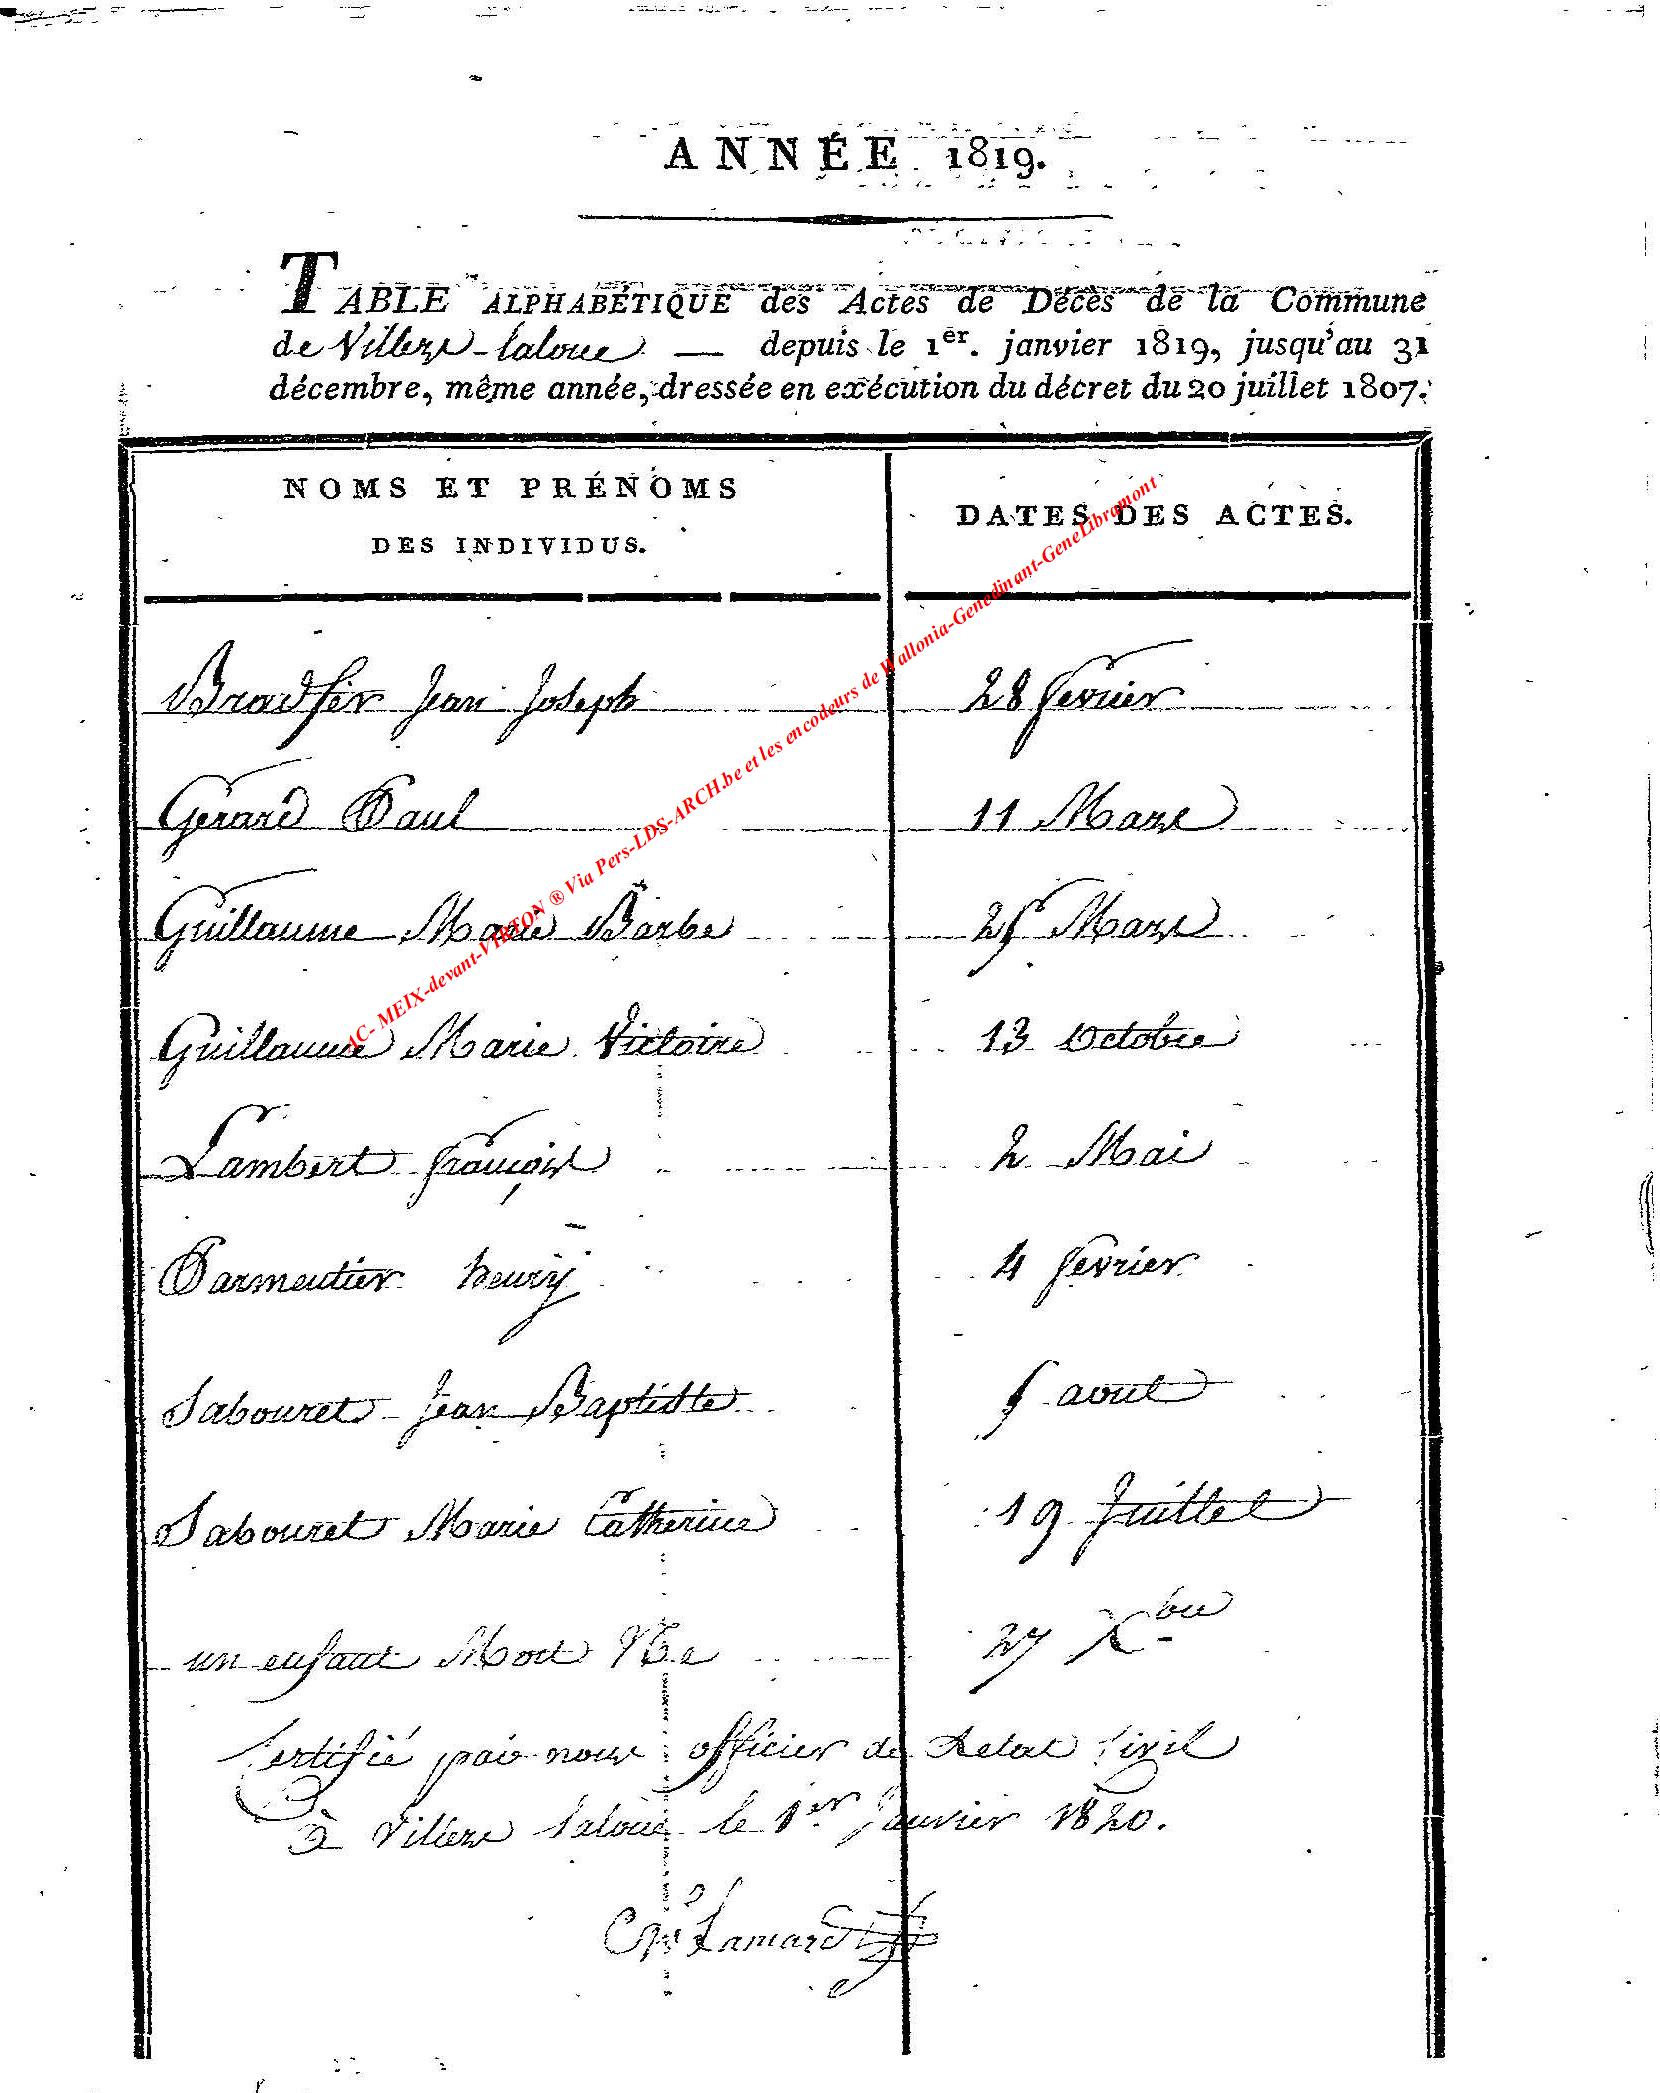 ANNÉE 1819.
TABLE ALPHABÉTIQUE des Actes de Décès de la Commune
de Villers-laloue — depuis le 1er. janvier 1819, jusqu'au 31
décembre, même année, dressée en exécution du décret du 20 juillet 1807.
NOMS ET PRÉNOMS
DES INDIVIDUS.
DATES DES ACTES.
Bradfer Jean Joseph 28 fevrier
Gerard Paul 11 Mars
Guillaume Marie Barbe 25 Mars
Guillaume Marie Victoire 13 Octobre
Lambert françois 2 Mai
Parmentier henry 4 fevrier
Sabouret Jean Baptiste 5 aout
Sabouret Marie Catherine 19 Juillet
un enfant Mort Né 27 Xbre
Certifié par nous officier de Letat Civil
à Villers laloue le 1er Janvier 1820.
Lamard
AC- MEIX-devant-VIRTON ® Via Pers-LDS-ARCH.be et les encodeurs de Wallonia-Genedinant-GeneLibramont